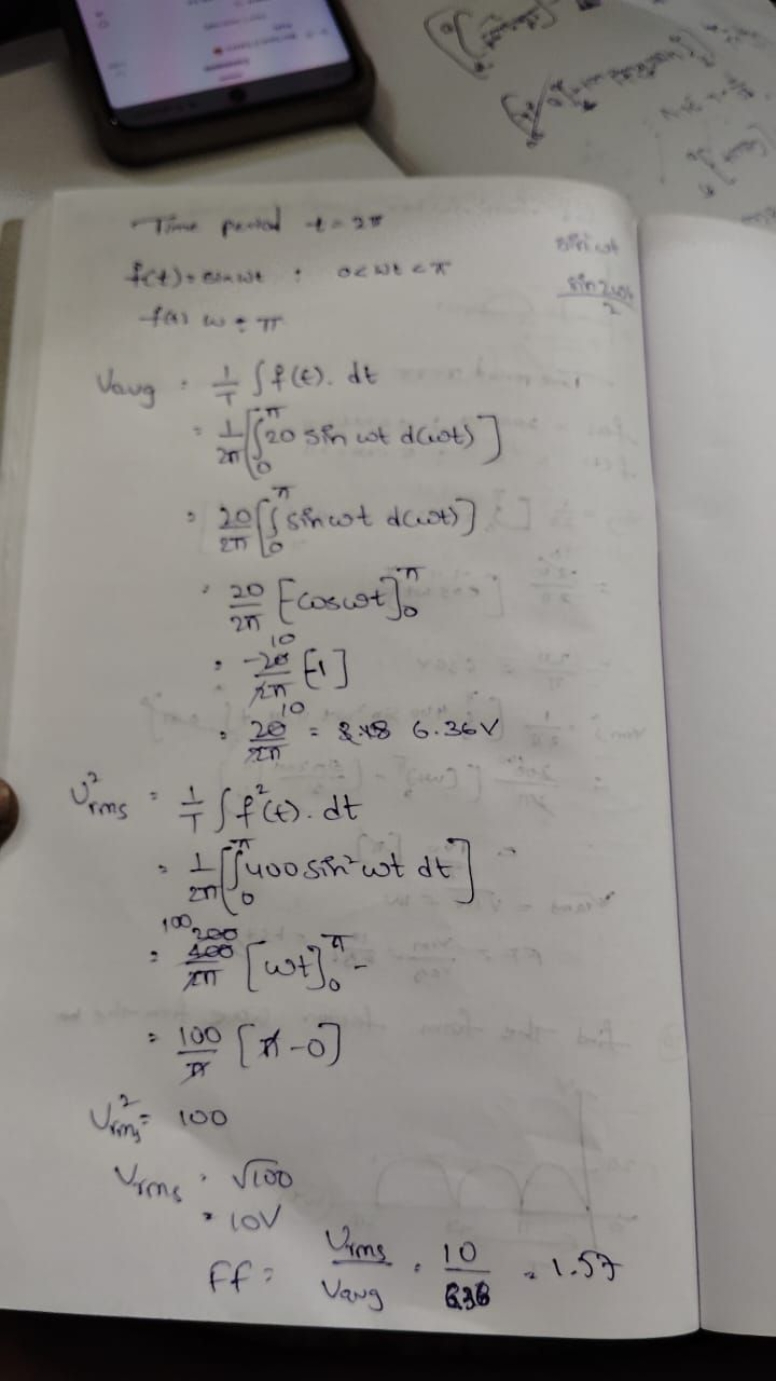 Time period t = 2π
f(t) = sin ωt : 0 < ωt < π
sin ωt
Vavg = 1/T ∫ f(t). dt
= 1/2π [∫₀^π 20 sin ωt d(ωt)]
= 20/2π [∫₀^π sin ωt d(ωt)]
= 20/2π [-cos ωt]₀^π
= -20/2π [-1]
10
= 20/2π = 6.36 V
10
V²rms = 1/T ∫ f²(t). dt
= 1/2π [∫₀^π 400 sin² ωt dt]
100 200
= 400/2π [ωt]₀^π -
= 100/π [π - 0]
V²rms = 100
Vrms = √100
= 10V
FF = Vrms/Vavg = 10/6.36 = 1.57